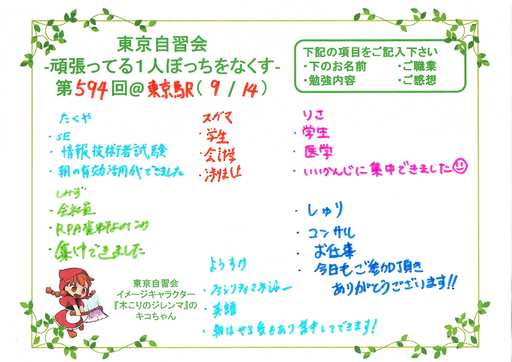 東京自習会
-頑張ってる1人ぼっちをなくす-
第594回@東京駅(9/14)
下記の項目をご記入下さい
・下のお名前 ・ご職業
・勉強内容 ・ご感想
たくや
・SE
・情報技術者試験
・朝の有効活用ができました
スガマ
・学生
・会計学
りさ
・学生
・医学
・いいかんじに集中できました
しみず
・会社員
・集中できました
・しゅり
・コンサル
・お仕事
・今日もご参加頂き
ありがとうございます!!
ようすけ
・英語
東京自習会
イメージキャラクター
『木こりのジレンマ』の
キコちゃん